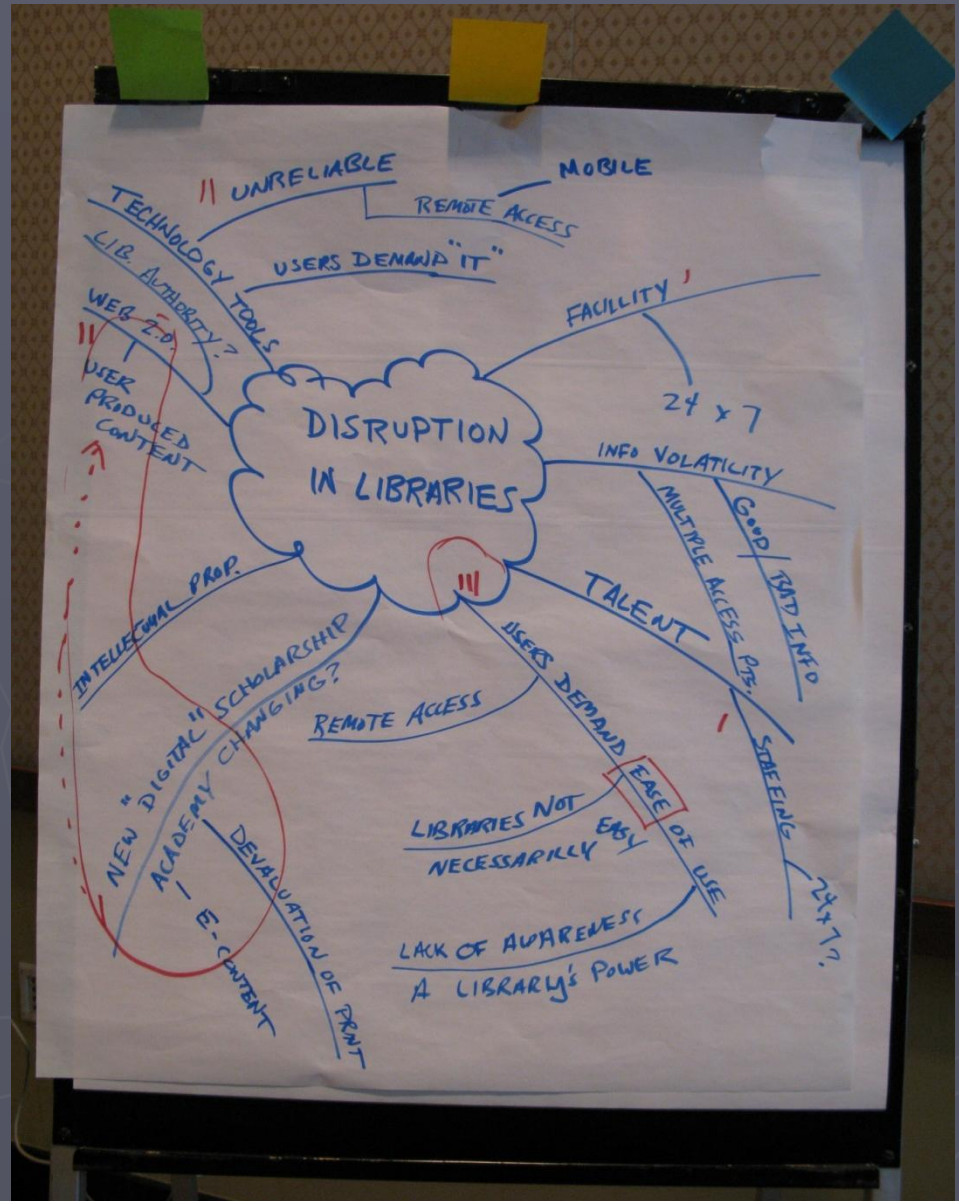 DISRUPTION
IN LIBRARIES
TECHNOLOGY TOOLS
UNRELIABLE
REMOTE ACCESS
MOBILE
USERS DEMAND "IT"
LIB. AUTHORITY?
WEB 2.0.
USER
PRODUCED
CONTENT
FACILLITY
24 x 7
INFO VOLATILITY
MULTIPLE ACCESS PTS.
GOOD/BAD INFO
TALENT
STAFFING
24x7?
USERS DEMAND EASE OF USE
REMOTE ACCESS
LIBRARIES NOT
NECESSARILLY EASY
LACK OF AWARENESS
A LIBRARY'S POWER
INTELLECTUAL PROP.
NEW "DIGITAL" SCHOLARSHIP
ACADEMY CHANGING?
E-CONTENT
DEVALUATION OF PRINT